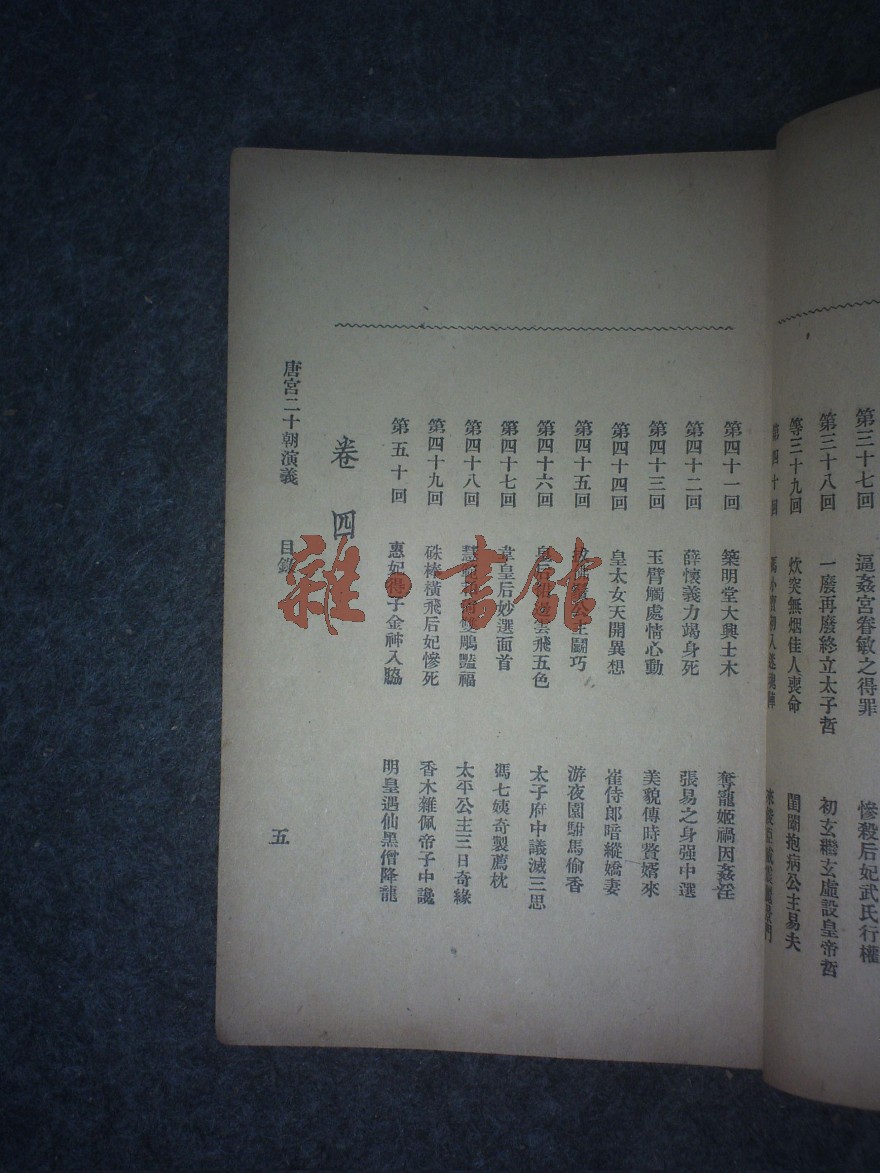 第三十七回 逼姦宮眷敏之得罪 慘殺后妃武氏行權
第三十八回 一廢再廢終立太子哲 初玄繼玄虛設皇帝哲
等三十九回 炊突無烟佳人喪命 閨闥抱病公主易夫
第四十回
第四十一回 築明堂大興土木 奪寵姬禍因姦淫
第四十二回 薛懷義力竭身死 張易之身强中選
第四十三回 玉臂觸處情心動 美貌傳時贅婿來
第四十四回 皇太女天開異想 崔侍郎暗縱嬌妻
第四十五回 公主鬭巧 游夜園駙馬偷香
第四十六回 皇后 雲飛五色 太子府中議滅三思
第四十七回 韋皇后妙選面首 馮七姨奇製薦枕
第四十八回 雙鵰豔福 太平公主三日奇緣
第四十九回 硃棒橫飛后妃慘死 香木雜佩帝子中讒
第五十回 惠妃得子金神入脇 明皇遇仙黑僧降龍
卷四
唐宮二十朝演義 目錄 五
雜·書館